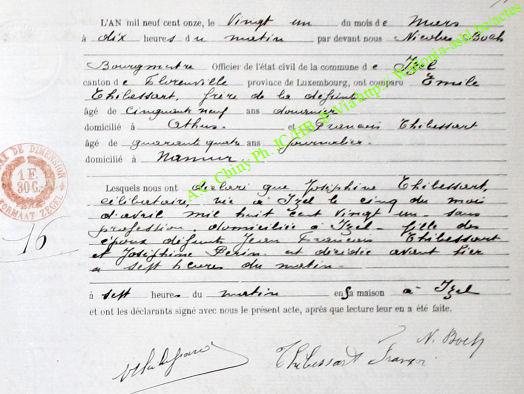 L'AN mil neuf cent onze, le Vingt un du mois de Mars
à dix heures du matin par devant nous Nicolas Boch
Bourgmestre Officier de l'état civil de la commune de Izel
canton de Florenville province de Luxembourg, ont comparu Emile
Thibessart, frère de la défunte
âgé de Cinquante neuf ans douanier
domicilié à Athus et François Thibessart
âgé de quarante quatre ans journalier
domicilié à Namur
Lesquels nous ont déclaré que Joséphine Thibessart,
célibataire, née à Izel le cinq du mois
d'avril mil huit cent vingt un sans
profession domiciliée à Izel fille des
époux défunts Jean François Thibessart
et Joséphine Perin est décédée avant hier
à sept heures du matin
à sept heures du matin en sa maison à Izel
et ont les déclarants signé avec nous le présent acte, après que lecture leur en a été faite.
N. Boch
Thibessart François
DE DIMENSION
1 F.
30 C.
FORMAAT ZEGEL
16
A.G. Cluny Ph. JC HB